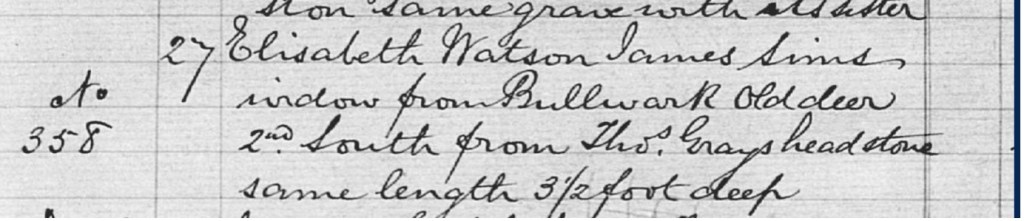 ston same grave with sister
27 Elisabeth Watson James Sims
widow from Bullwark Old deer
No 358 2nd South from Thos. Grays headstone
same length 3 1/2 foot deep